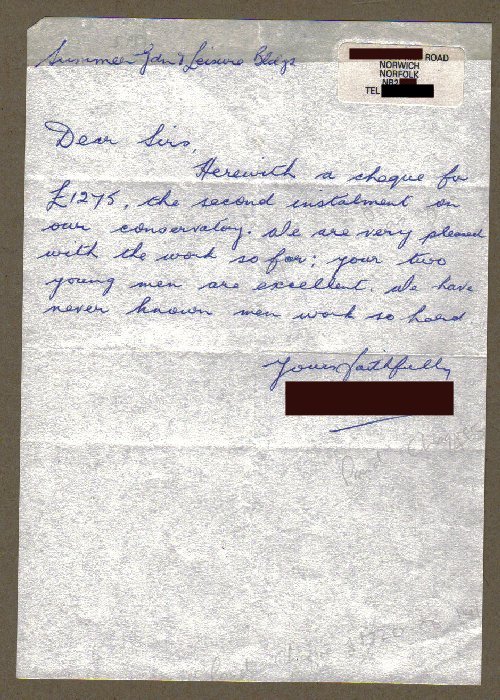 Summer Gdn & Leisure Bldgs
ROAD
NORWICH
NORFOLK
NR2
TEL
Dear Sirs,
Herewith a cheque for
£1275, the second instalment on
our conservatory. We are very pleased
with the work so far; your two
young men are excellent. We have
never known men work so hard
Yours faithfully